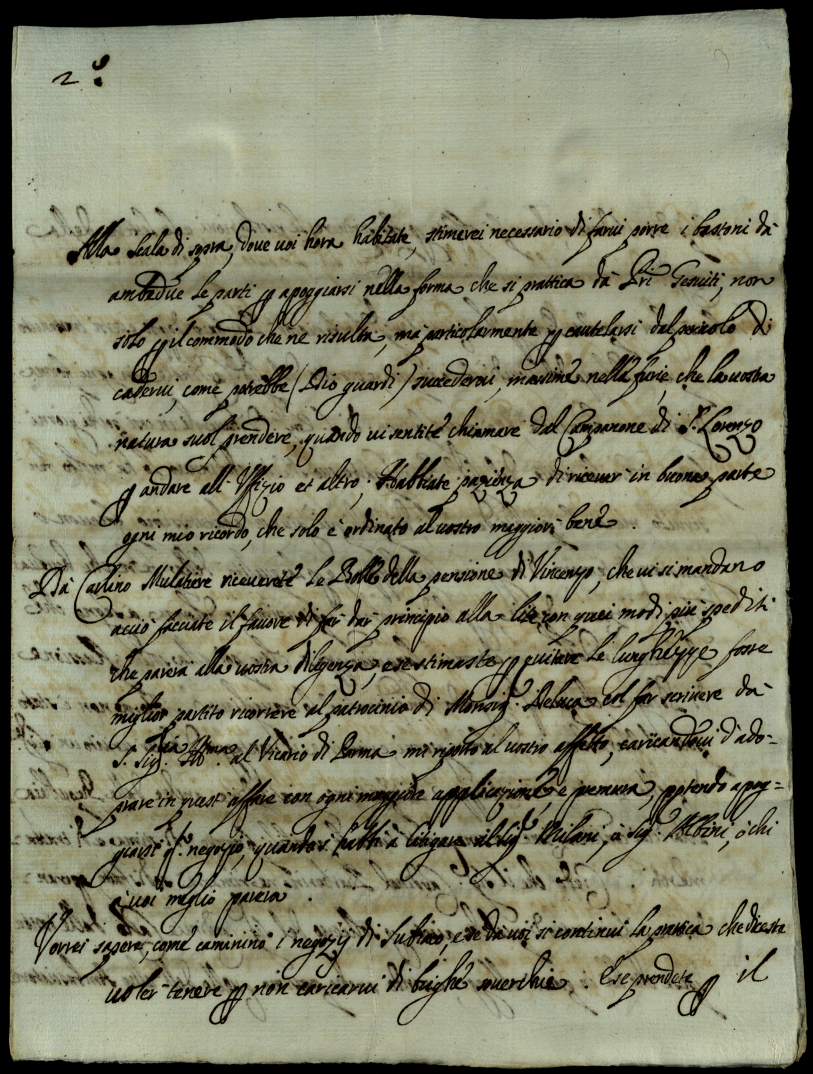 2.°
Alla Scala di sopra, dove voi hora habitate, stimerei necessario di farvi porre i bastoni da
ambedue le parti p apoggiarsi nella forma che si prattica da PPri Gesuiti, non
solo p il commodo che ne risulta, ma particolarmente p cautelarsi dal pericolo di
cadervi, come potrebbe (Dio guardi) succedervi, massime nelle furie, che la vostra
natura suol prendere, quando vi sentite chiamare dal Campanone di S. Lorenzo
p andare all'Uffizio et altro. Habbiate pazienza di ricever in buona parte
ogni mio ricordo, che solo è ordinato al vostro maggiori bene.
Da Carlino Mulatiere riceverete le Bolle della pensione di Vincenzo, che vi si mandano
acciò facciate il favore di far dar principio alla lite con quei modi più spediti
che parerà alla vostra diligenza, e se stimaste p evitare le lunghezze fosse
miglior partito ricorrere al patrocinio di Monsig.r Deluca col far scrivere da
S. Sig.ria Ill.ma al Vicario di Parma mi riporto al vostro affetto, caricandovi d'ado=
prare in quest'affare con ogni maggiore applicazione, e premura, potendo apog=
giarsi q.to negozio, quando si habbi à litigare al Sig.r Milani, ò Sig.r Albini, ò chi
à voi meglio parerà.
Vorrei sapere, come caminino i negozij di Subiaco, e se da voi si continui la prattica che diceste
voler tenere p non caricarvi di brighe soverchie. E se prendete p il